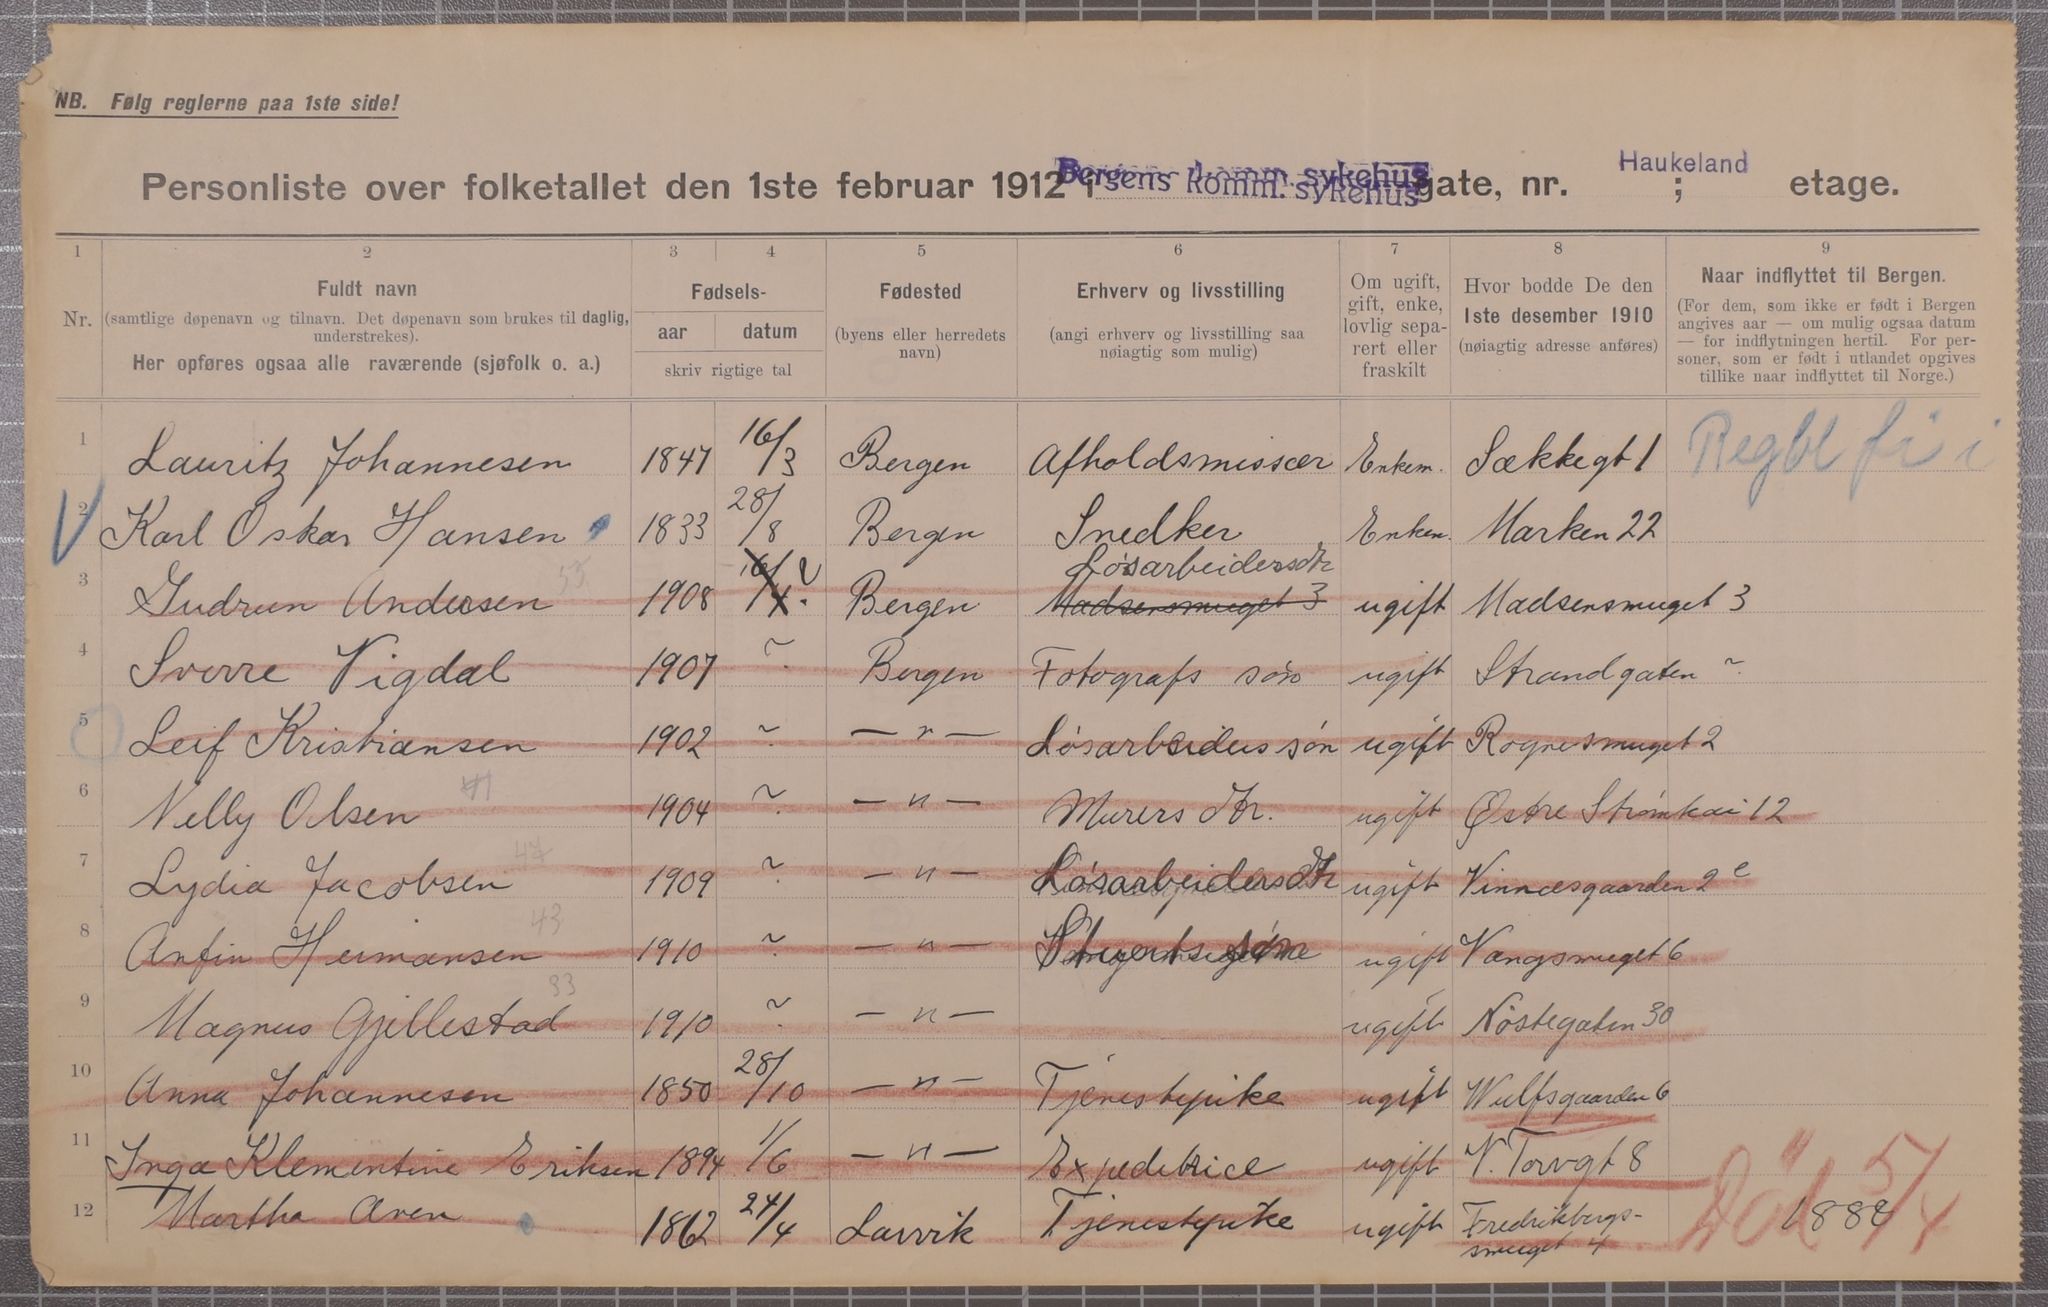 NB. Følg reglerne paa 1ste side!
Personliste over folketallet den 1ste februar 1912 i Bergens komm. sykehus gate, nr. Haukeland ; etage.
1 2 3 4 5 6 7 8 9
Nr.
Fuldt navn
(samtlige døpenavn og tilnavn. Det døpenavn som brukes til daglig, understrekes).
Her opføres ogsaa alle raværende (sjøfolk o. a.)
Fødsels-
aar datum
skriv rigtige tal
Fødested
(byens eller herredets navn)
Erhverv og livsstilling
(angi erhverv og livsstilling saa nøiagtig som mulig)
Om ugift, gift, enke, lovlig sepa-rert eller fraskilt
Hvor bodde De den
1ste desember 1910
(nøiagtig adresse anføres)
Naar indflyttet til Bergen.
(For dem, som ikke er født i Bergen angives aar — om mulig ogsaa datum — for indflytningen hertil. For per-soner, som er født i utlandet opgives tillike naar indflyttet til Norge.)
1 Lauritz Johannesen 1847 16/3 Bergen Afholdsmissær Enkem. Sækkegt 1
2 Karl Oskar Hansen 1833 28/8 Bergen Snedker Enkem. Marken 22
3 Gudrun Andersen 55 1908 16/4 ? Bergen Løsarbeidersdtr Madsensmuget 3 ugift Madsensmuget 3
4 Sverre Vigdal 1907 ~ Bergen Fotografs søn ugift Strandgaten ~
5 Leif Kristiansen 1902 ~ — " — Løsarbeiders søn ugift Rognesmuget 2
6 Nelly Olsen 41 1904 ~ — " — Murers dtr. ugift Østre Strømkai 12
7 Lydia Jacobsen 47 1909 ~ — " — Løsarbeidersdtr ugift Vinnæsgaarden 2 c
8 Anfin Hermansen 43 1910 ~ — " — Stuerts søn ugift Vangsmuget 6
9 Magnus Gjellestad 33 1910 ~ — " — ugift Nøstegaten 30
10 Anna Johannesen 1850 28/10 — " — Tjenestepike ugift Wulfsgaarden 6
11 Inga Klementine Eriksen 1894 1/6 — " — Expeditrice ugift V. Torvgt 8
12 Martha Aven 1862 24/4 Lavvik Tjenestepike ugift Fredrikbergs-smuget 4 1888
Død 5/4